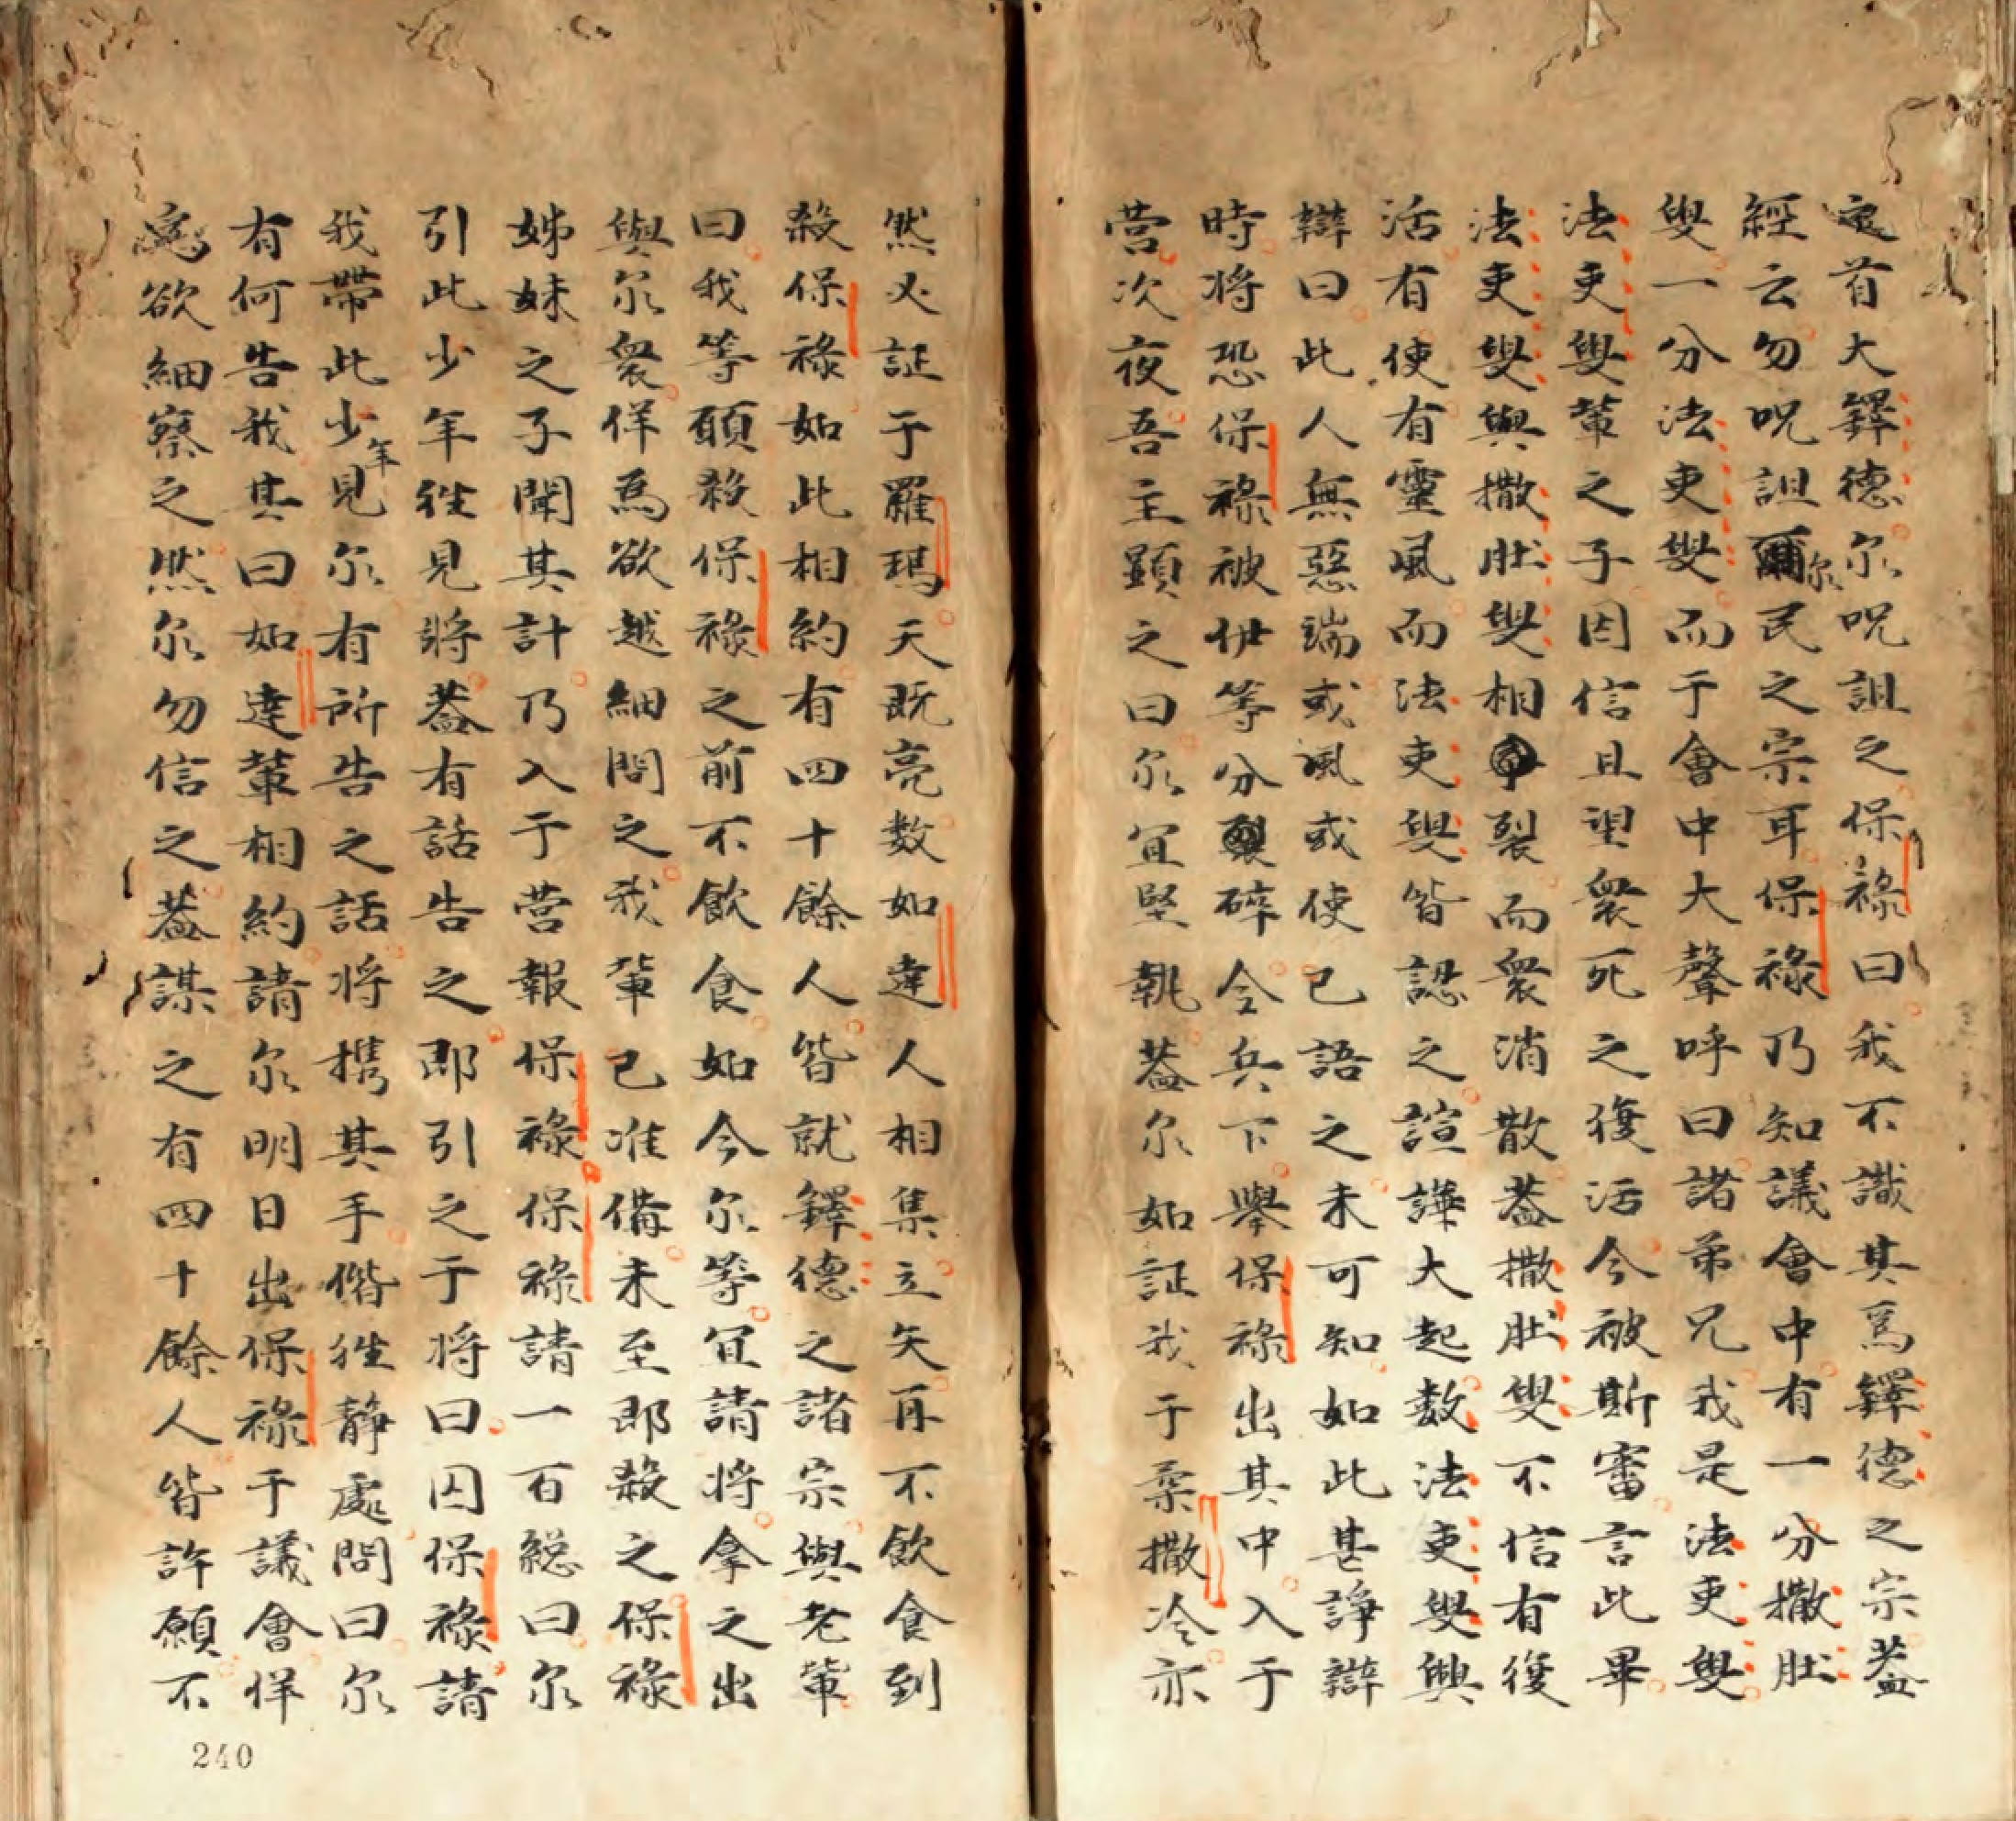 定首大鐸德尔呪詛之保祿曰我不識其爲鐸德之宗蓋
經云勿呪詛尔民之宗耳保祿乃知議會中有一分撒肚
叟一分法吏叟而于會中大聲呼曰諸弟兄我是法吏叟
法吏叟輩之子因信且望衆死之復活今被斯審言此畢
法吏叟與撒肚叟相裂而衆消散蓋撒肚叟不信有復
活有使有靈風而法吏叟皆認之諠譁大起数法吏叟興
辯曰此人無惡端或風或使已語之未可知如此甚諍辯
時将恐保祿被伊等分碎令兵下舉保祿出其中入于
营次夜吾主顕之曰尔宜堅執蓋尔如証我于柔撒冷亦
然必証于羅瑪天既亮数如達人相集立矢再不飲食到
殺保祿如此相約有四十餘人皆就鐸德之諸宗與老輩
曰我等願殺保祿之前不飲食如今尔等宜請将拿之出
與尔衆佯爲欲越細問之我輩已准備未至即殺之保祿
姊妹之子聞其計乃入于营報保祿保祿請一百総曰尔
引此少年徃見将蓋有話告之即引之于将曰囚保祿請
我帶此少年見尔有所告之話将携其手偕徃靜處問曰尔
有何告我其曰如達輩相約請尔明日出保祿于議會佯
爲欲細察之然尔勿信之蓋謀之有四十餘人皆許願不
240